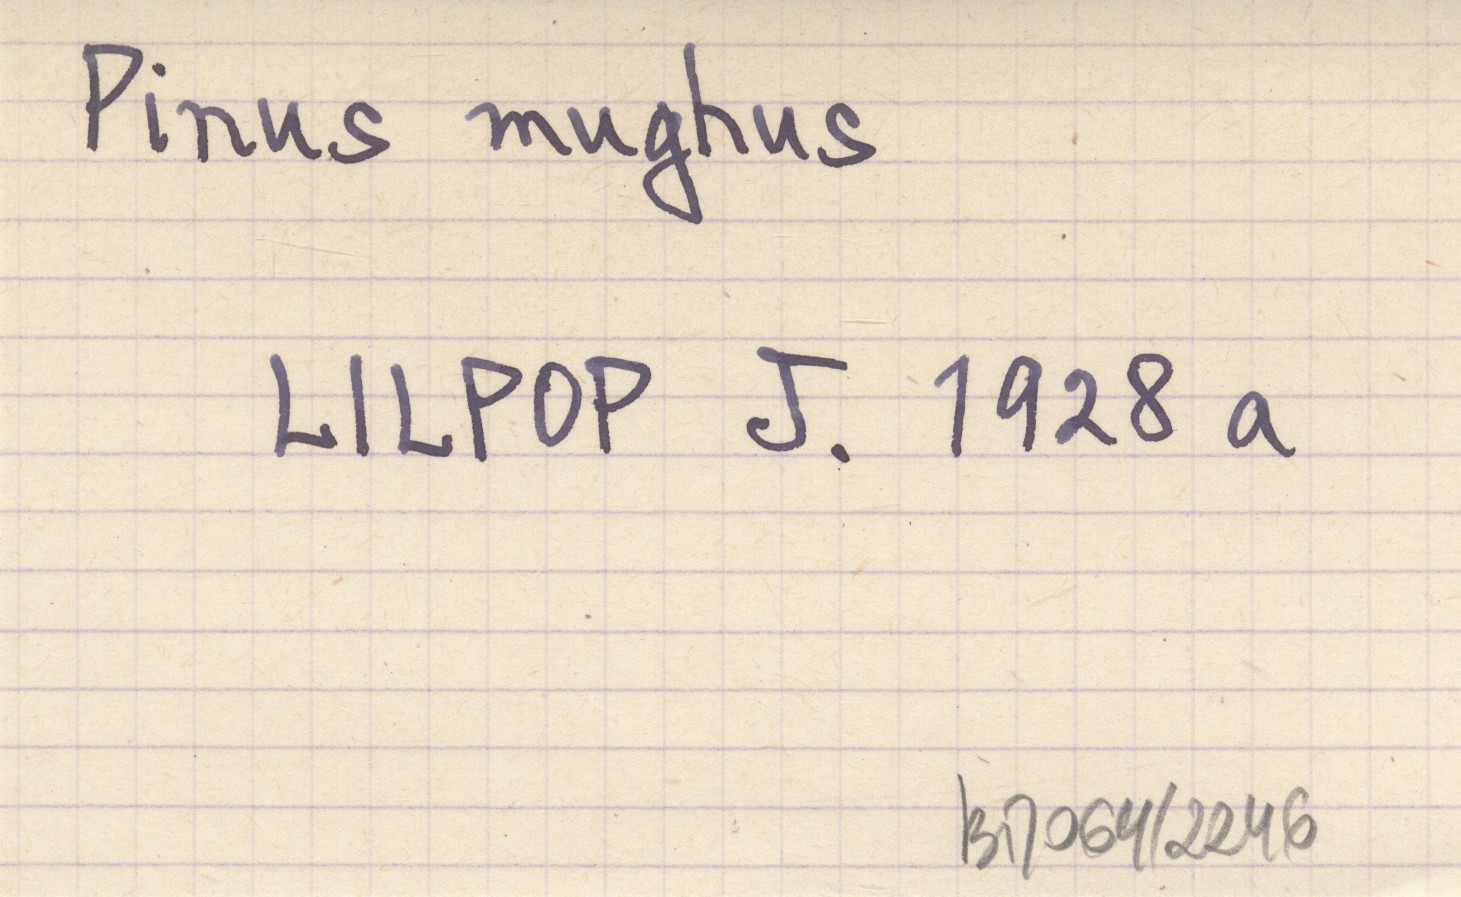 Pinus mughus
LILPOP J. 1928 a
064/2246